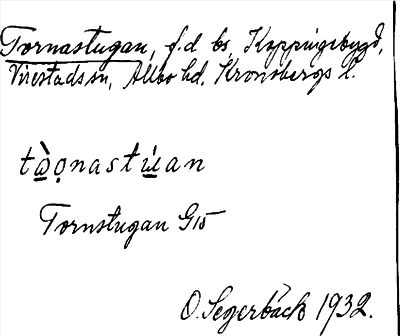 Tornastugan, f.d bs, Koppingebygd,
Virestads sn, Allbo hd. Kronobergs l.
tὰ̱ọnastú̱an
Tornstugan G15
O. Segerbäck 1932.